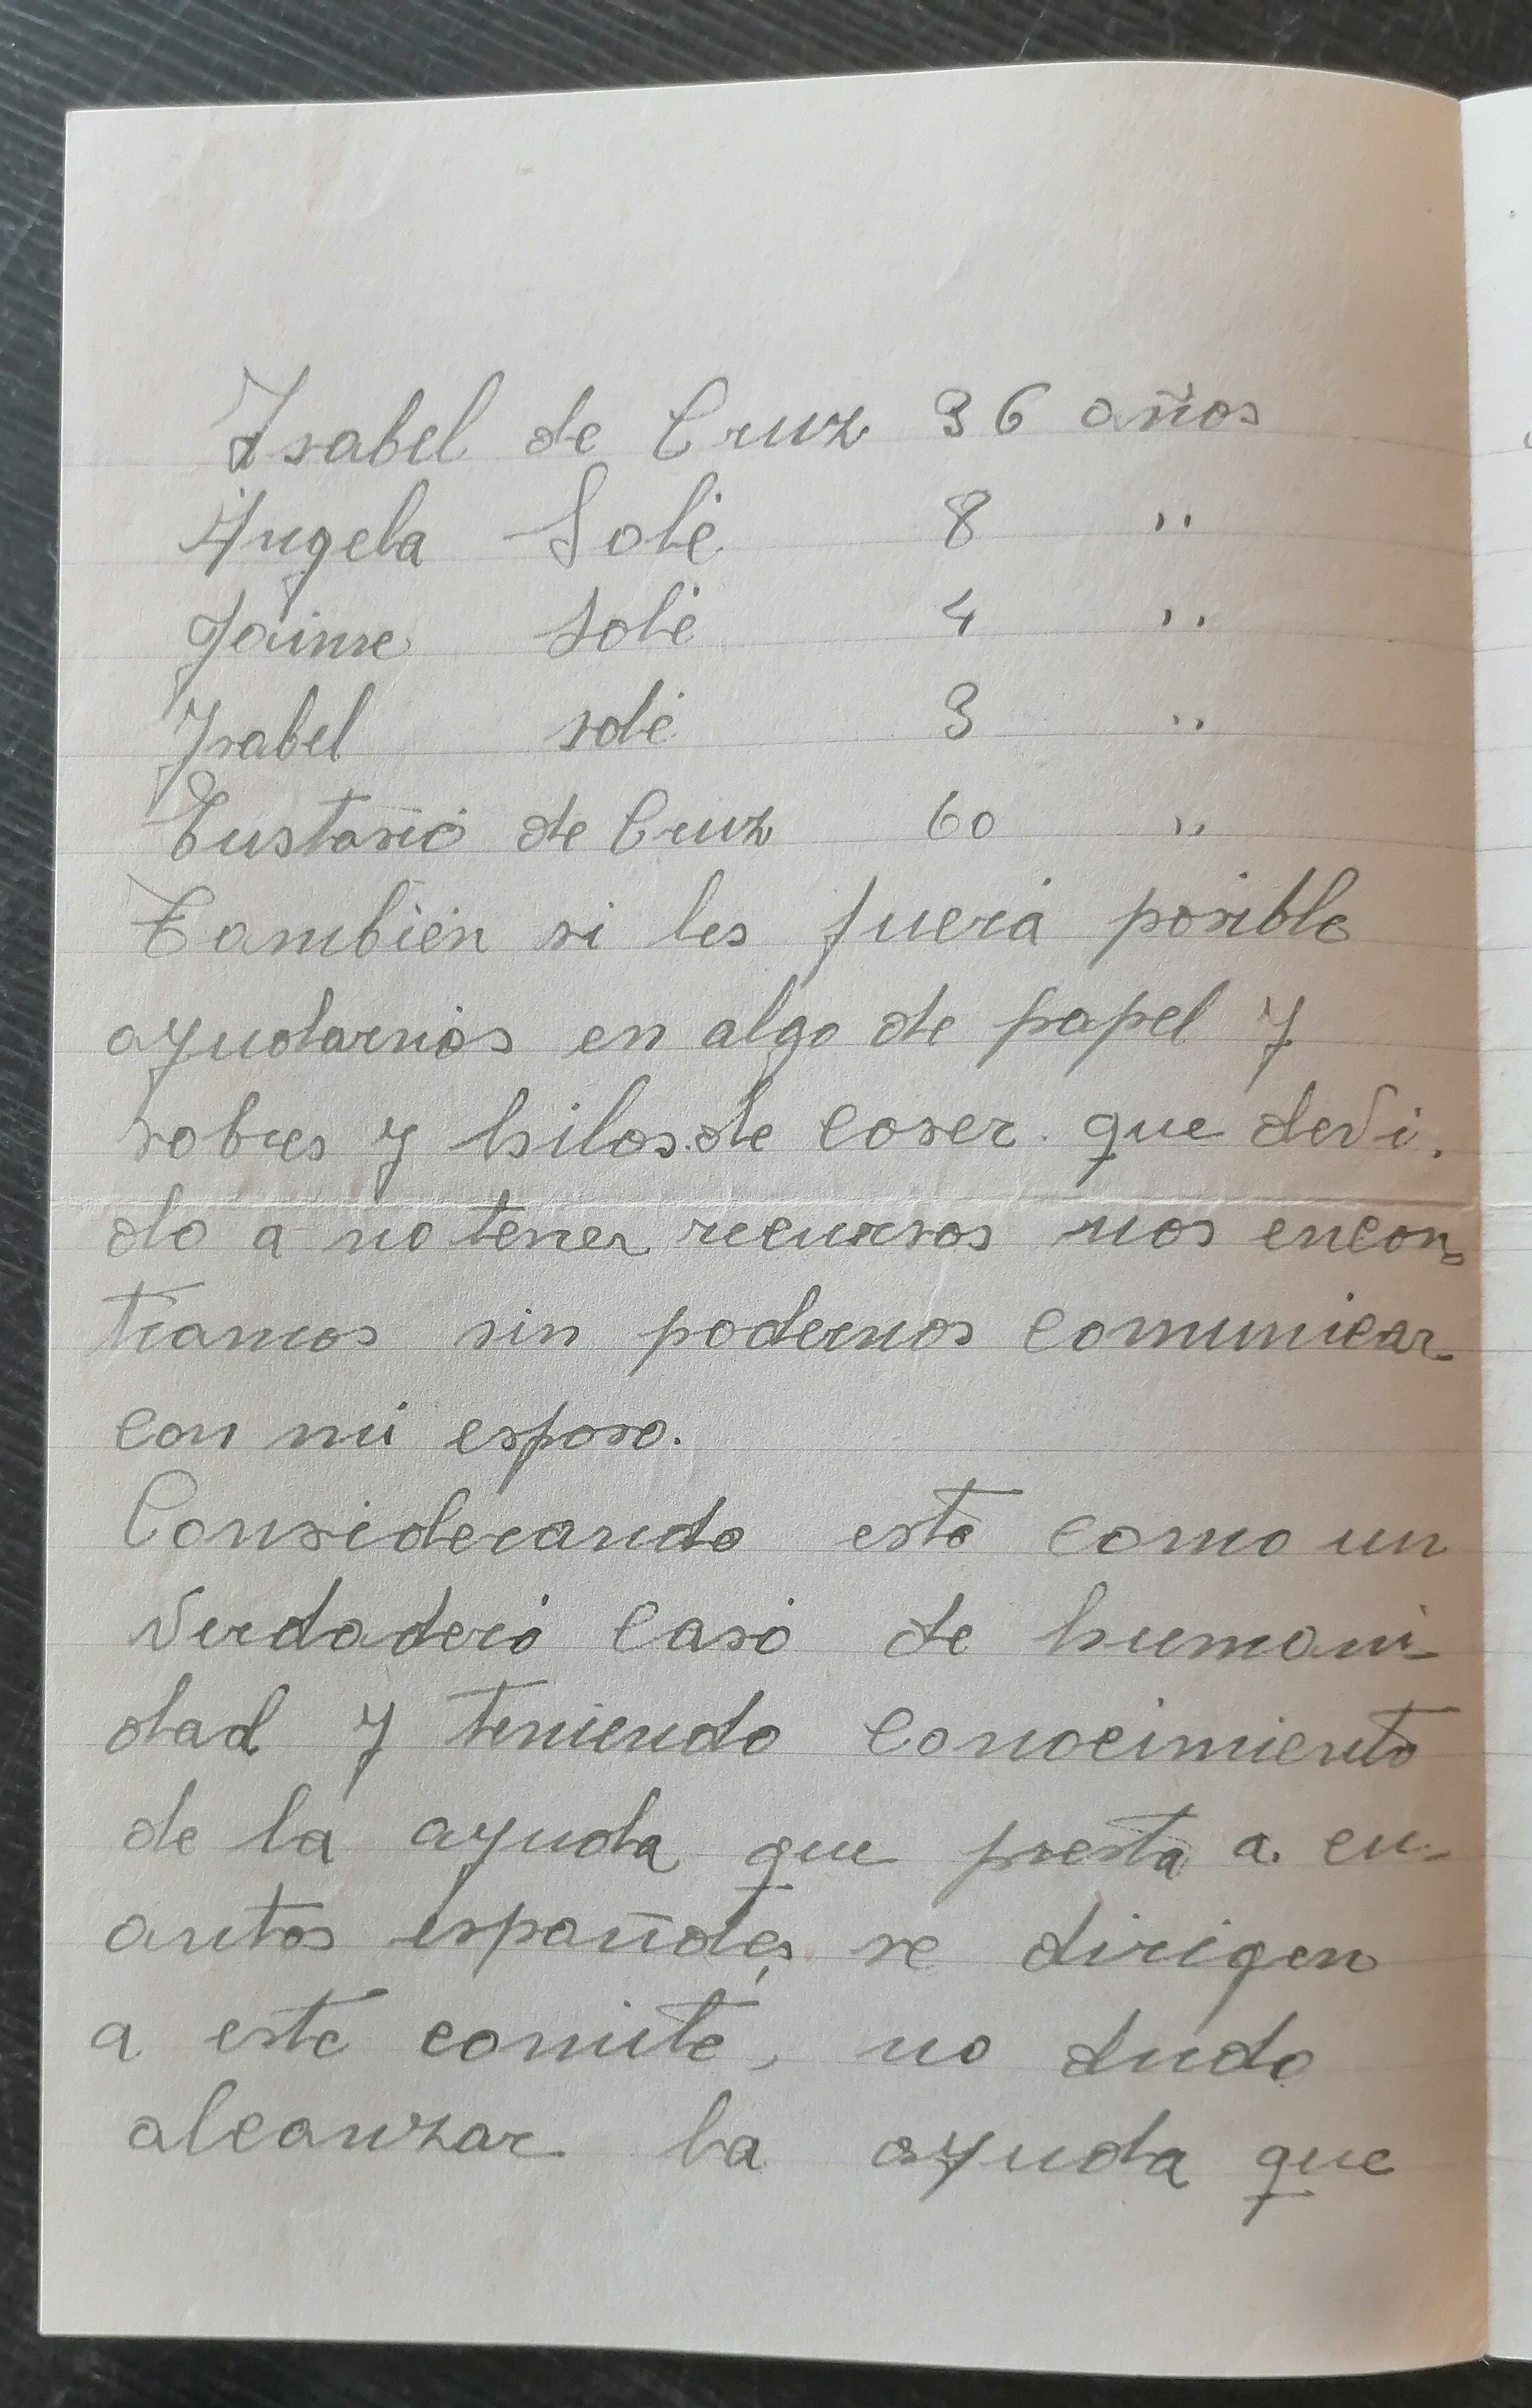 Isabel de Cruz 36 años
Angela Solé 8 ''
Jaime Solé 4 ''
Isabel Solé 3 ''
Eustasio de Cruz 60 ''
También si les fuera posible
ayudarnos en algo de papel y
sobres y hilos de coser que devi-
do a no tener recursos nos encon-
tramos sin podernos comunicar
con mi esposo.
Considerando esto como un
verdadero caso de humani-
dad y teniendo conocimiento
de la ayuda que presta a cu-
antos españoles se dirigen
a este comité, no dudo
alcanzar la ayuda que